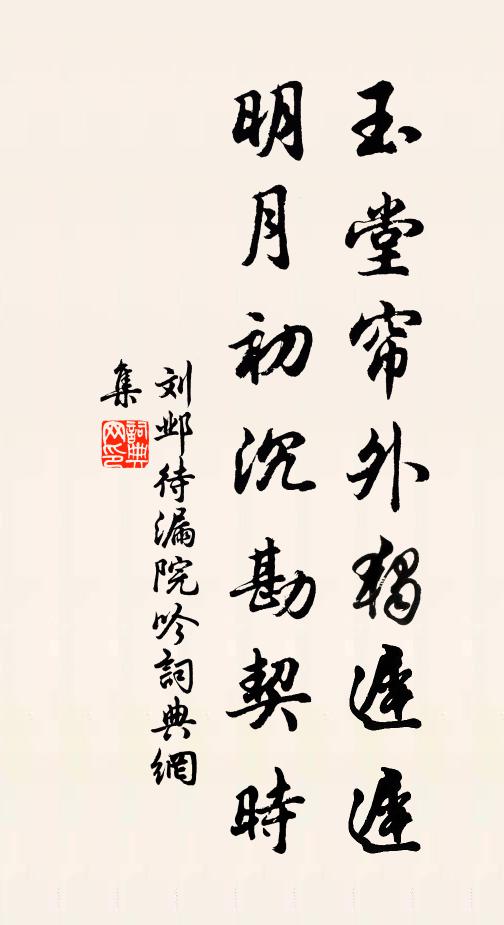 玉堂帘外獨遲遲
明月初沉勘契時
刘邺待漏院吟詞典網
集
詞典网印